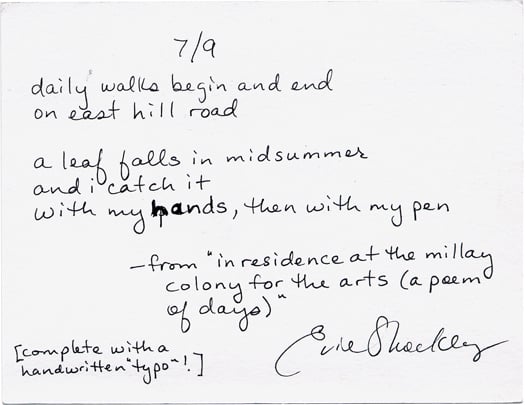 7/9
daily walks begin and end
on east hill road
a leaf falls in midsummer
and i catch it
with my hands, then with my pen
—from "in residence at the millay
colony for the arts (a poem
of days)"
[complete with a
handwritten "typo"!]
Evie Shockley